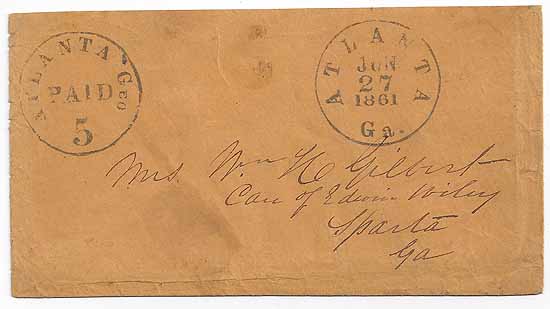 ATLANTA Geo
PAID
5
ATLANTA
JUN
27
1861
Ga.
Mrs. Wm H Gilbert
Care of Edwin Wiley
Sparta
Ga